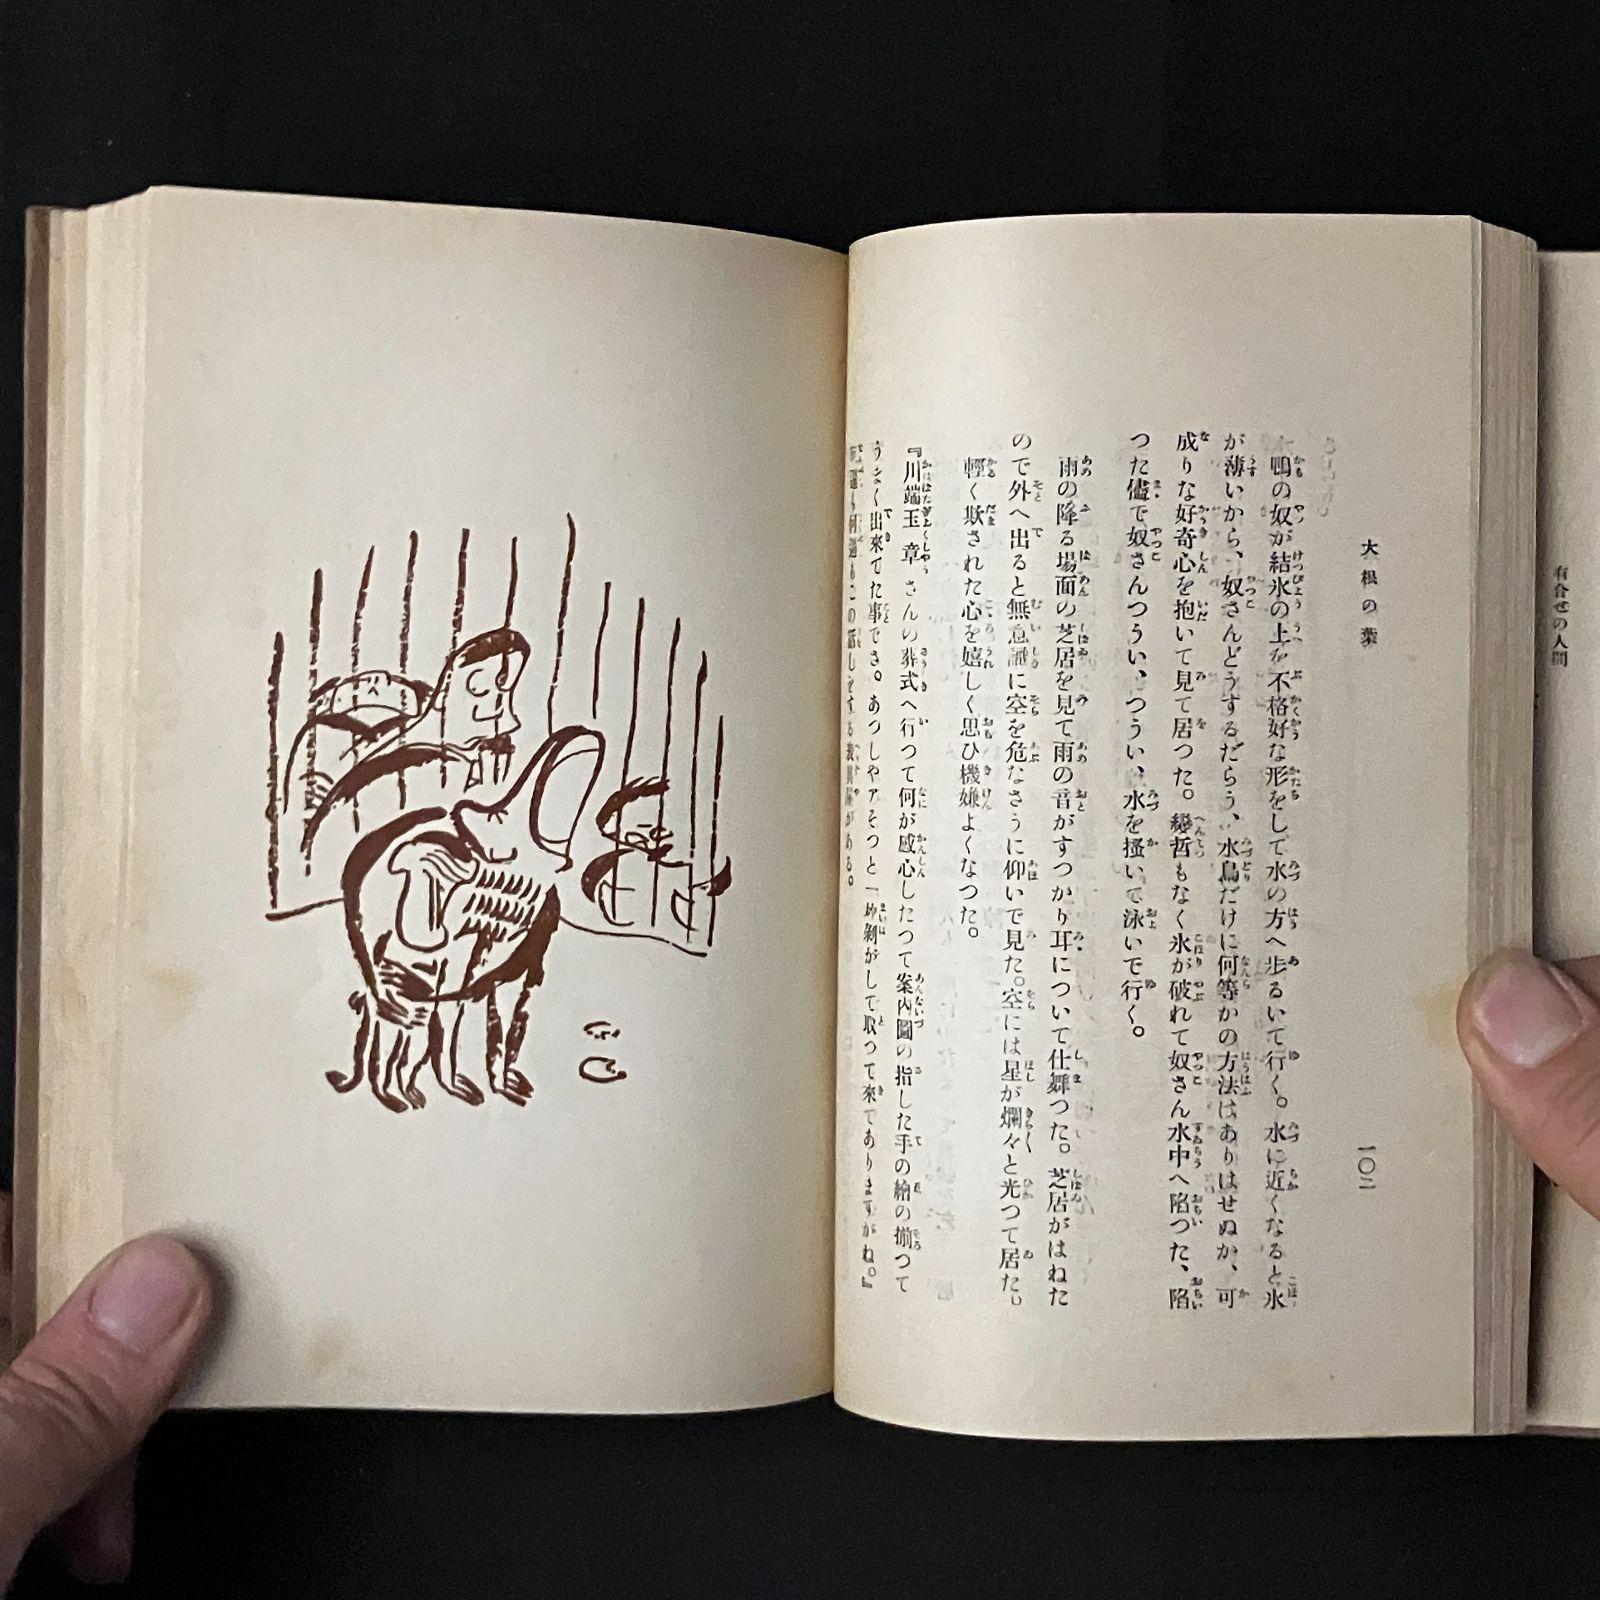 有合せの人間
大根の葉
一〇二
鴨の奴が結氷の上を不格好な形をして水の方へ歩るいて行く。水に近くなると氷
が薄いから、奴さんどうするだらう、水鳥だけに何等かの方法はありはせぬか、可
成りな好奇心を抱いて見て居つた。變哲もなく氷が破れて奴さん水中へ陷つた、陷
つた儘で奴さんつうい、つうい、水を掻いで泳いで行く。
雨の降る場面の芝居を見て雨の音がすつかり耳について仕舞つた。芝居がはねた
ので外へ出ると無意識に空を危なさうに仰いで見た。空には星が爛々と光つて居た。
輕く欺された心を嬉しく思ひ機嫌よくなつた。
『川端玉章さんの葬式へ行つて何が感心したつて案内圖の指した手の繪の揃つて
うまく出來てた事でさ。あつしやアそつと一枚剝がして取つて來てありますがね。』
何遍も何遍もこの話しをする表具屋がある。